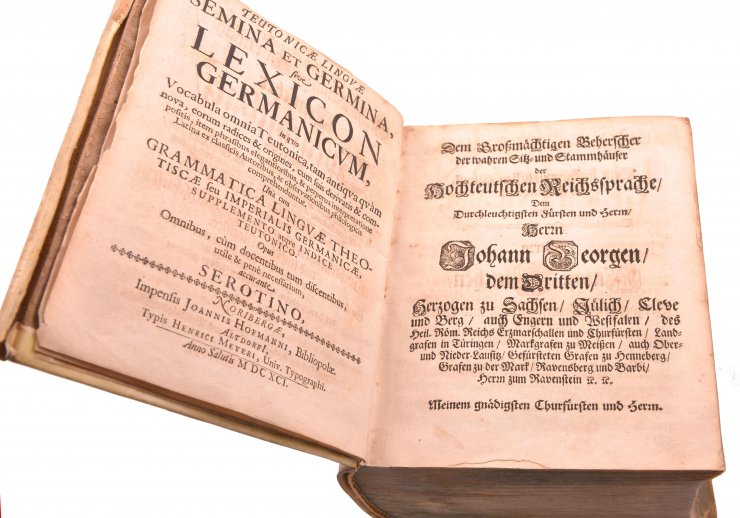 TEUTONICÆ LINGVÆ
SEMINA ET GERMINA,
sive
LEXICON
GERMANICVM,
in quo
Vocabula omnia Teutonica, tam antiqva qvàm
nova, eorum radices & origines, cum suis derivatis & com-
positis, item phrasibus elegantioribus, & perpetua interpretatione
Latina ex classicis Autoribus, & observationibus philologicis
comprehenduntur.
Una cum
GRAMMATICA LINGVÆ THEO-
TISCÆ seu IMPERIALIS GERMANICÆ,
SUPPLEMENTO atque INDICE
TEUTONICO.
Opus
Omnibus, cùm docentibus tum discentibus,
utile & penè necessarium,
accurante
SEROTINO.
NORIBERGÆ,
Impensis JOANNIS HOFMANNI, Bibliopolæ.
ALTDORFI,
Typis HENRICI MEYERI, Univ. Typographi.
Anno Salutis M DC XCI.
Dem Großmächtigen Beherscher
der wahren Sitz- und Stammhäuser
der
Hochteutschen Reichssprache/
Dem
Durchleuchtigsten Fürsten und Herrn/
Herrn
Johann Georgen/
dem Dritten/
Herzogen zu Sachsen/ Jülich/ Cleve
und Berg/ auch Engern und Westfalen/ des
Heil. Röm. Reichs Erzmarschallen und Churfürsten/ Land-
grafen in Türingen/ Markgrafen zu Meißen/ auch Ober-
und Nieder-Lausitz/ Gefürsteten Grafen zu Henneberg/
Grafen zu der Mark/ Ravensberg und Barbi/
Herrn zum Ravenstein ꝛc. ꝛc.
Meinem gnädigsten Churfürsten und Herrn.